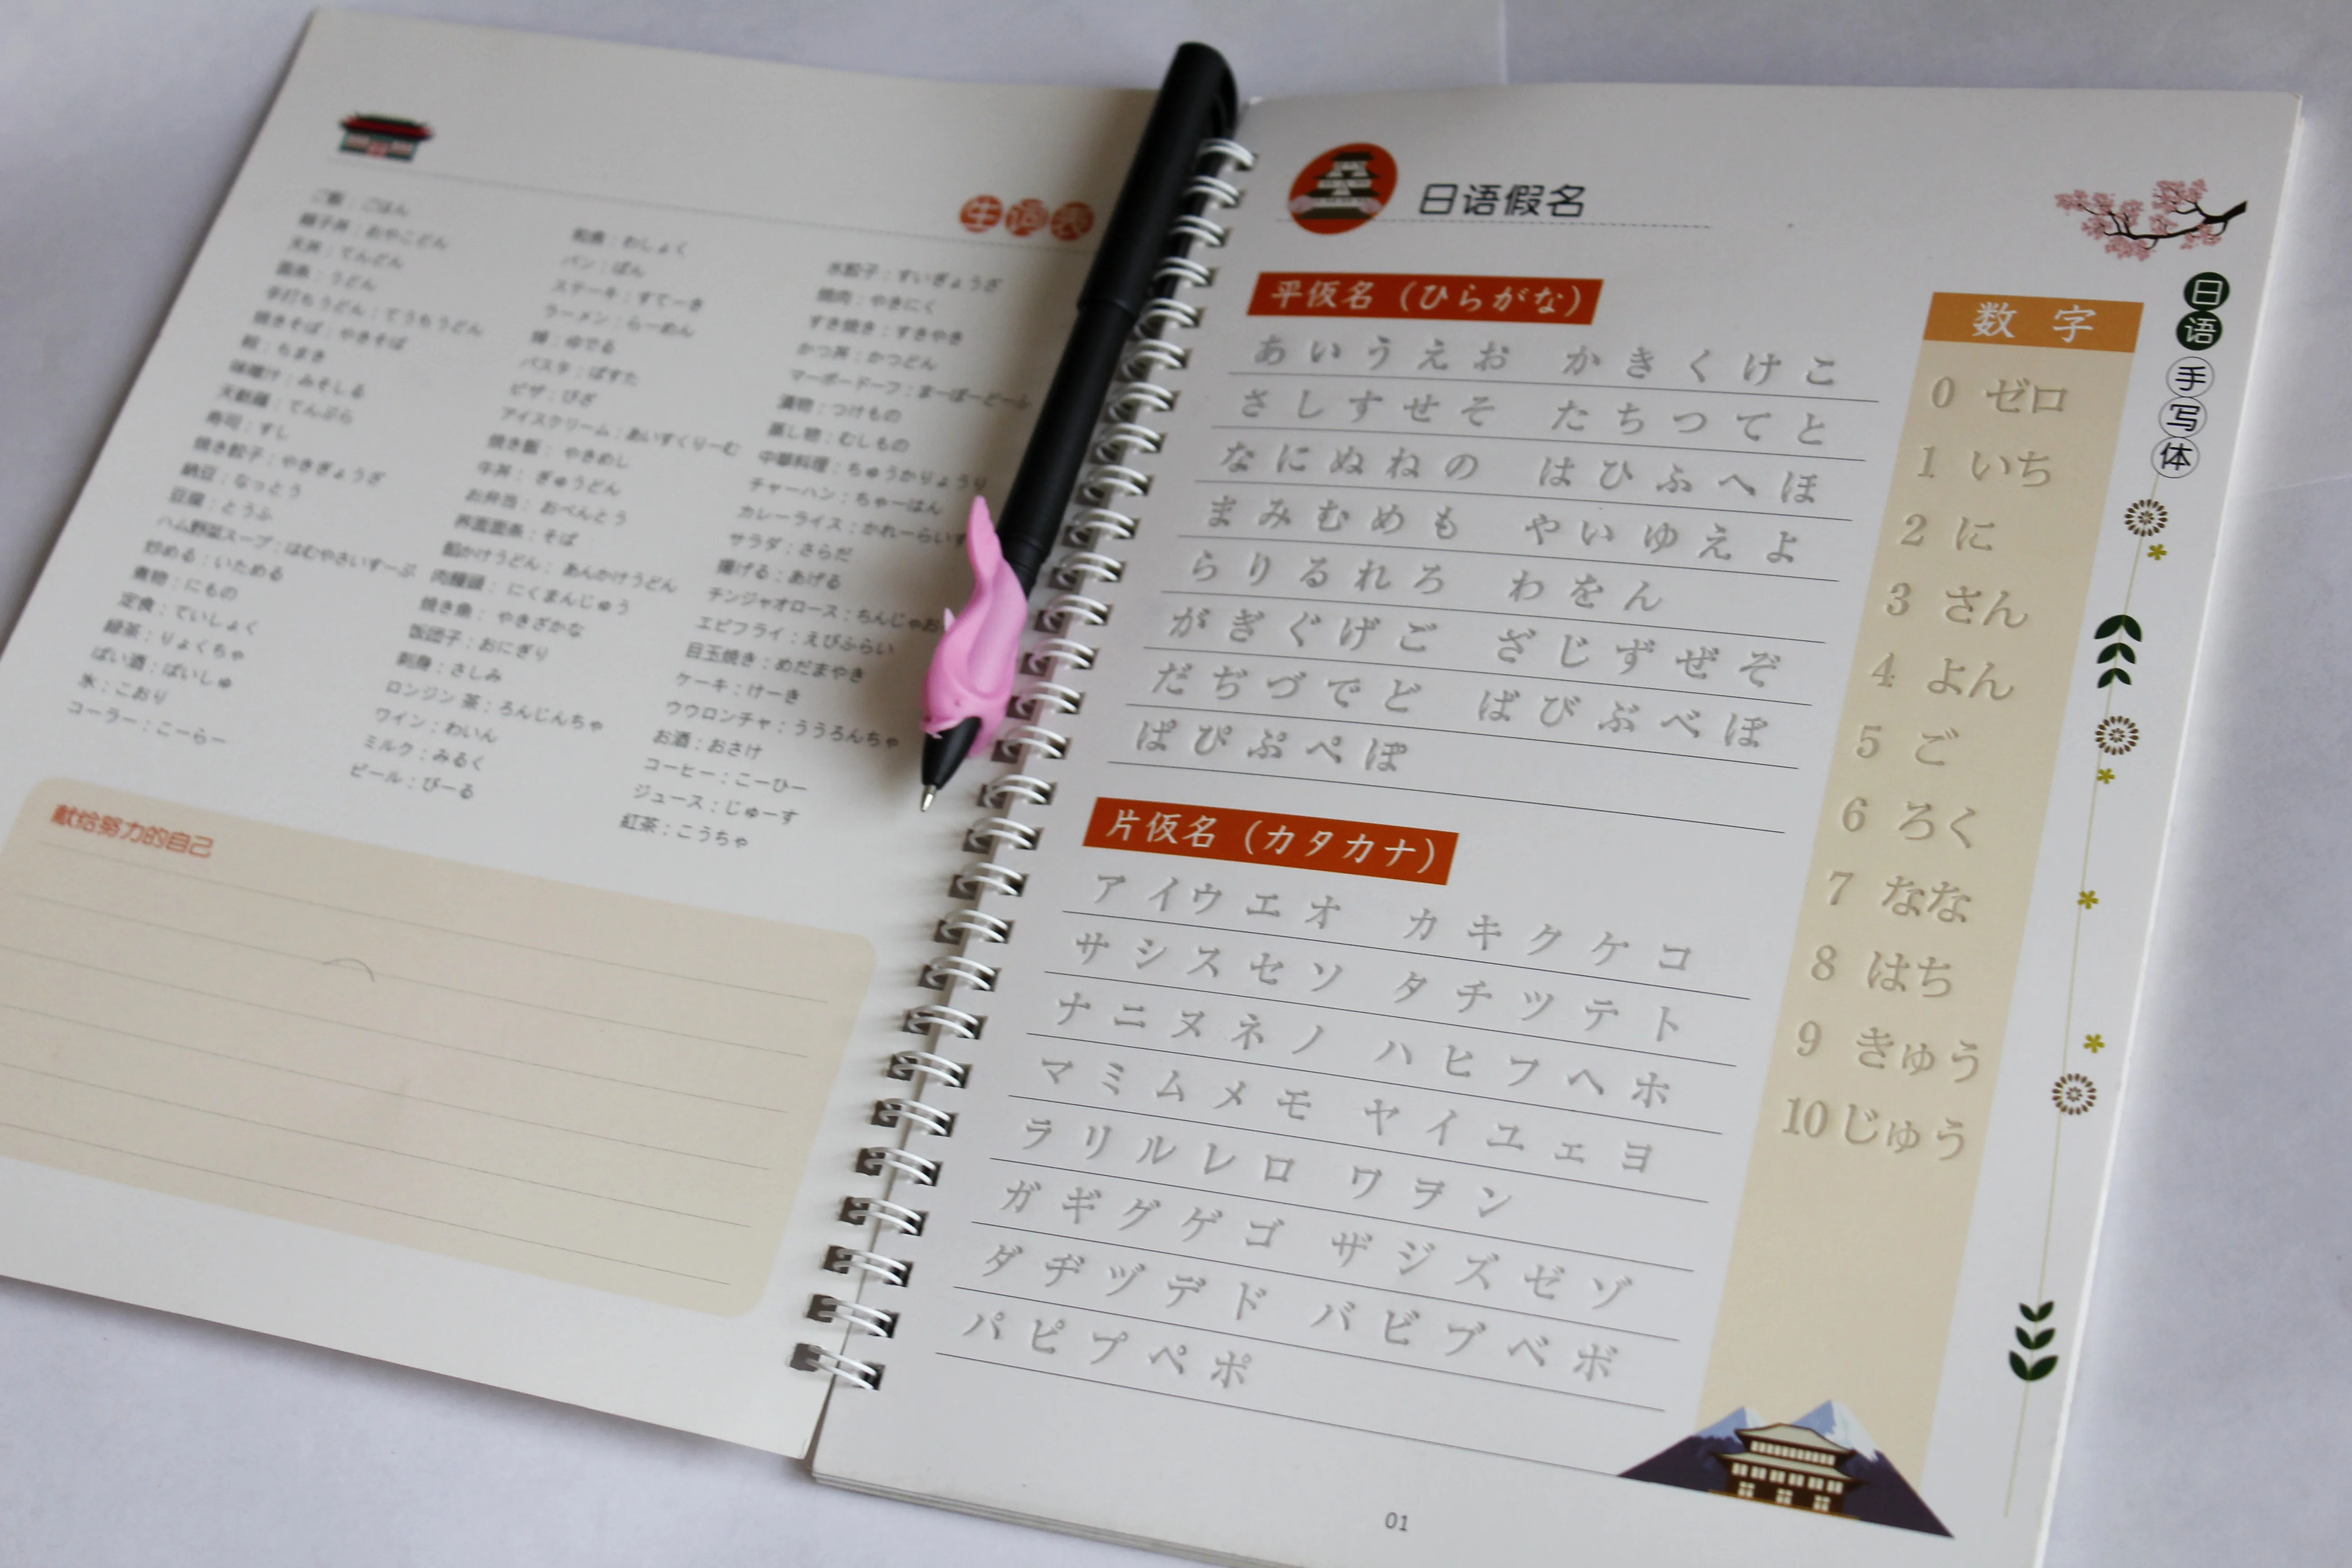 生词表
ご飯：ごはん
親子丼：おやこどん
天丼：てんどん
面条：うどん
手打ちうどん：てうちうどん
焼きそば：やきそば
粽：ちまき
味噌汁：みそしる
天麩羅：てんぷら
寿司：すし
焼き餃子：やきぎょうざ
納豆：なっとう
豆腐：とうふ
ハム野菜スープ：はむやさいすーぷ
炒める：いためる
煮物：にもの
定食：ていしょく
緑茶：りょくちゃ
ばい酒：ばいしゅ
氷：こおり
コーラー：こーらー
和食：わしょく
パン：ぱん
ステーキ：すてーき
ラーメン：らーめん
ゆでる
パスタ：ぱすた
ピザ：ぴざ
アイスクリーム：あいすくりーむ
焼き飯：やきめし
牛丼：ぎゅうどん
お弁当：おべんとう
そば
餡かけうどん：あんかけうどん
肉饅頭：にくまんじゅう
焼き魚：やきざかな
饭团子：おにぎり
刺身：さしみ
ロンジン 茶：ろんじんちゃ
ワイン：わいん
ミルク：みるく
ビール：びーる
水餃子：すいぎょうざ
焼肉：やきにく
すき焼き：すきやき
かつ丼：かつどん
マーボードーフ：まーぼーどーふ
漬物：つけもの
蒸し物：むしもの
中華料理：ちゅうかりょうり
チャーハン：ちゃーはん
カレーライス：かれーらいす
サラダ：さらだ
揚げる：あげる
チンジャオロース：ちんじゃお
エビフライ：えびふらい
目玉焼き：めだまやき
ケーキ：けーき
ウウロンチャ：ううろんちゃ
お酒：おさけ
コーヒー：こーひー
ジュース：じゅーす
紅茶：こうちゃ
献给努力的自己
日语假名
平仮名（ひらがな）
あ い う え お か き く け こ
さ し す せ そ た ち つ て と
な に ぬ ね の は ひ ふ へ ほ
ま み む め も や い ゆ え よ
ら り る れ ろ わ を ん
が ぎ ぐ げ ご ざ じ ず ぜ ぞ
だ ぢ づ で ど ば び ぶ べ ぼ
ぱ ぴ ぷ ぺ ぽ
片仮名（カタカナ）
ア イ ウ エ オ カ キ ク ケ コ
サ シ ス セ ソ タ チ ツ テ ト
ナ ニ ヌ ネ ノ ハ ヒ フ ヘ ホ
マ ミ ム メ モ ヤ イ ユ ェ ヨ
ラ リ ル レ ロ ワ ヲ ン
ガ ギ グ ゲ ゴ ザ ジ ズ ゼ ゾ
ダ ヂ ヅ デ ド バ ビ ブ ベ ボ
パ ピ プ ペ ポ
数 字
0 ゼロ
1 いち
2 に
3 さん
4 よん
5 ご
6 ろく
7 なな
8 はち
9 きゅう
10 じゅう
日语手写体
01